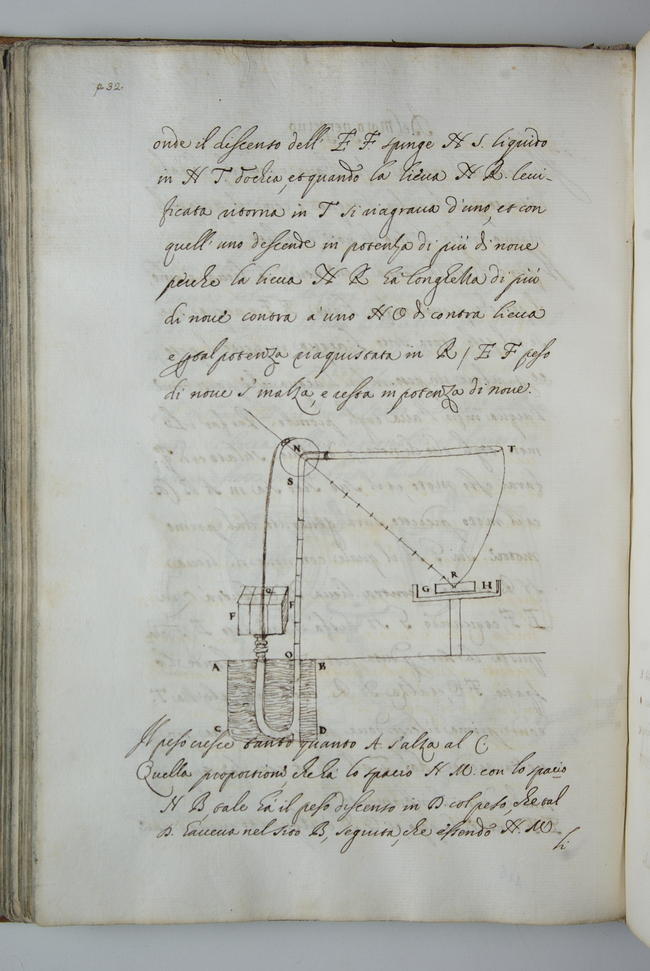 p. 32.
onde il discenso dell' E F spinge N S. liquido
in N T. d'oncia, et quando la lieva N R. levi-
ficata ritorna in T si riagrava d'uno, et con
quell' uno descende in potenza di più di nove
perche la lieva N R ha longhezza di più
di nove contra a uno N O di contra lieva
e potenza riaquistata in R / E F peso
di nove s'inalza, e resta in potenza di nove.
N T
S
R
G H
F F
O
A B
C D
Il peso cresce tanto quanto A s'alza al C.
Quella proportione, che ha lo spacio N M. con lo spacio
N B tale ha il peso disceso in D. col peso, che tal
D. haveva nel sito B, seguita, che essendo N. M
li